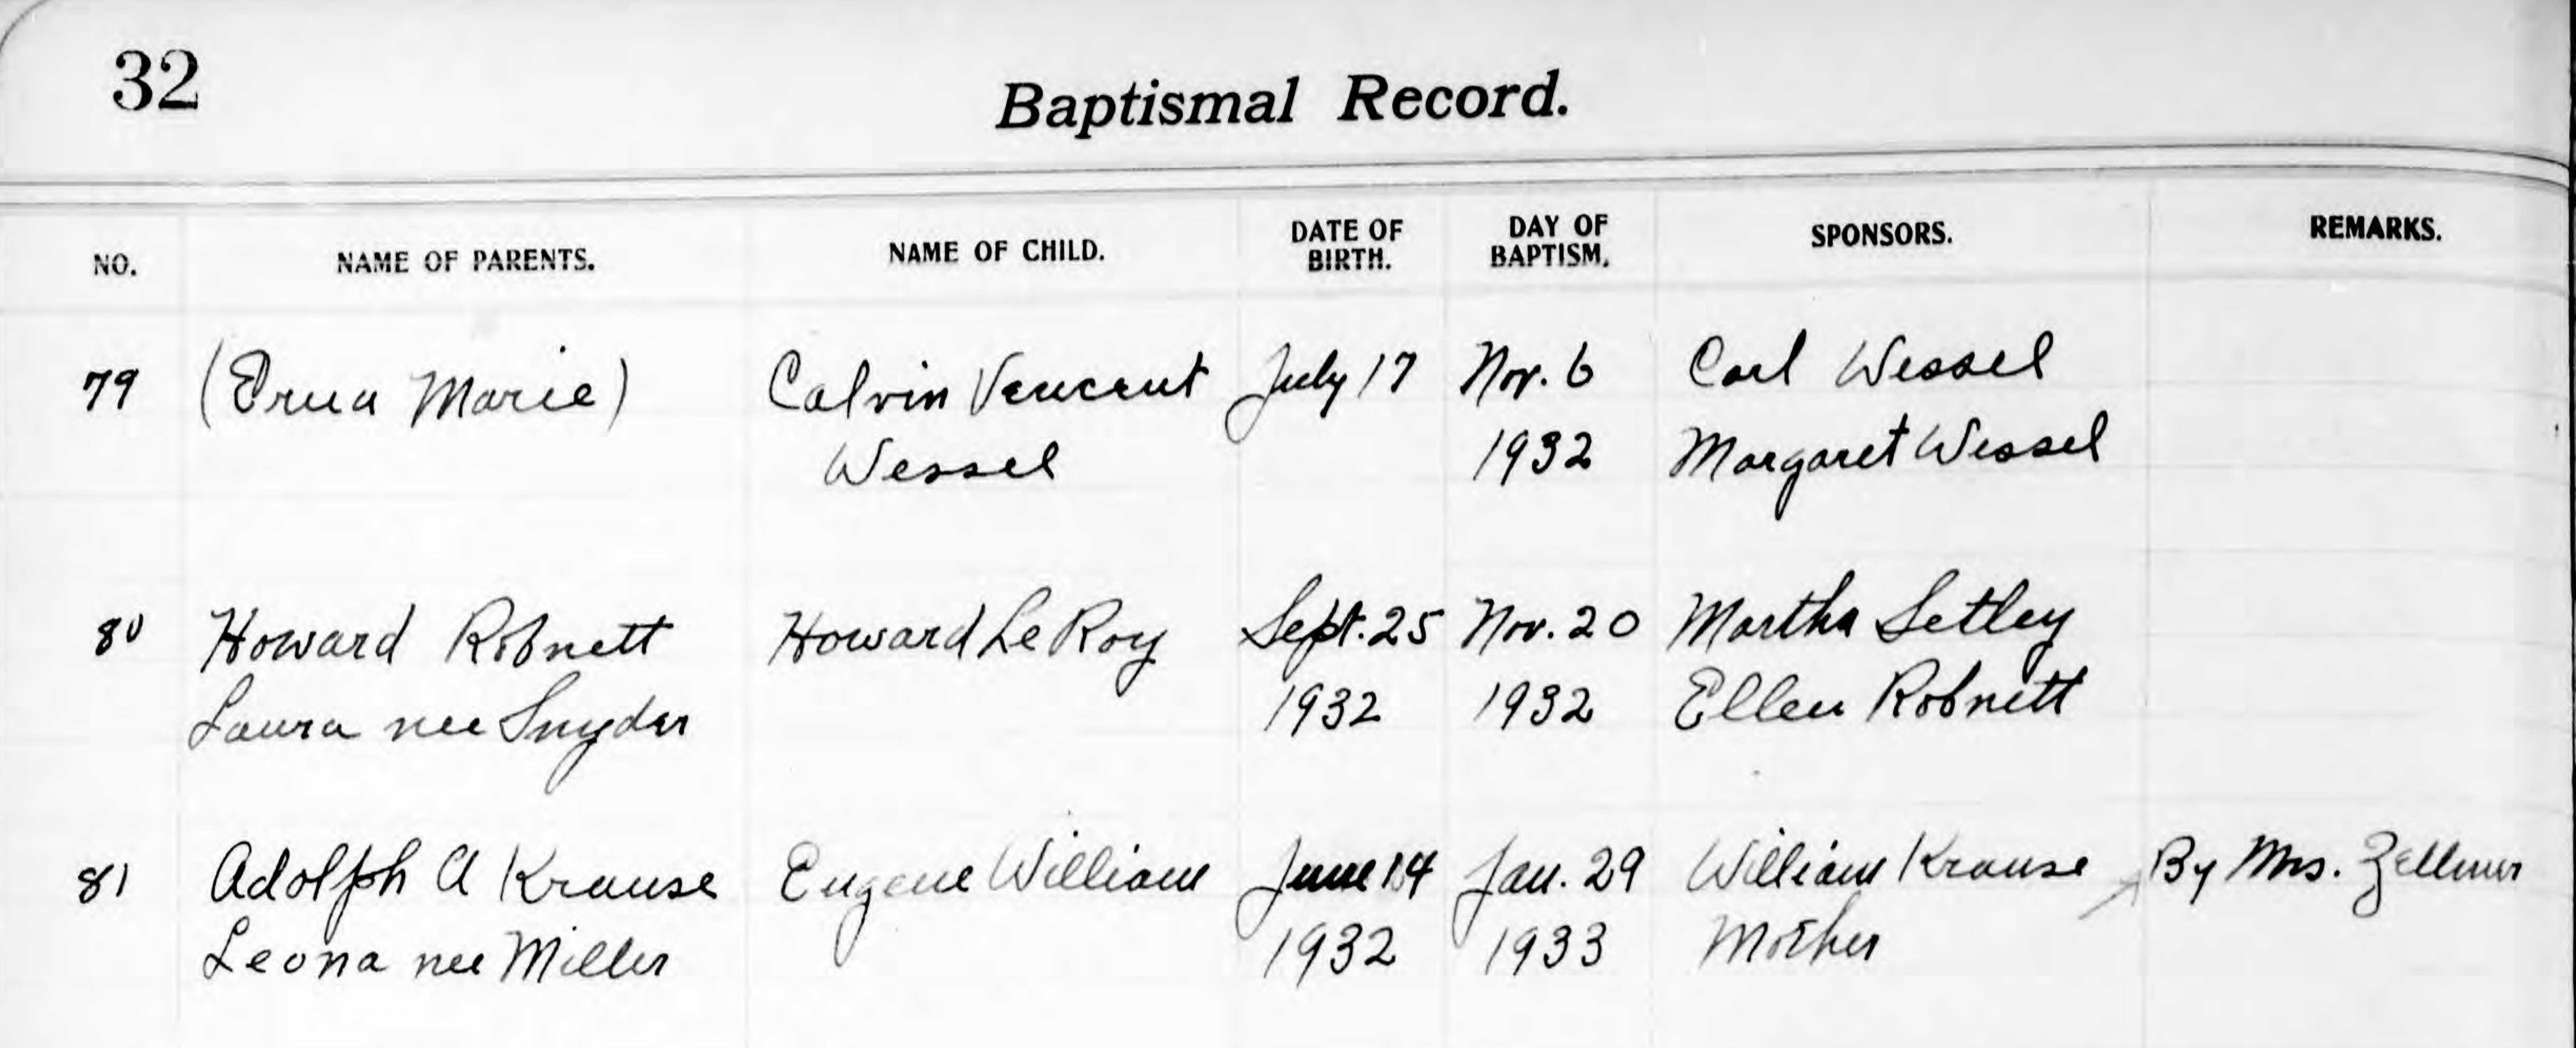 32
Baptismal Record.
NO. NAME OF PARENTS. NAME OF CHILD. DATE OF BIRTH. DAY OF BAPTISM. SPONSORS. REMARKS.
79 (Erna Marie) Calvin Vencent July 17 Nov. 6 Carl Wessel
Wessel 1932 Margaret Wessel
80 Howard Robnett Howard Le Roy Sept. 25 Nov. 20 Martha Setley
Laura nee Snyder 1932 1932 Ellen Robnett
81 Adolph A Krause Eugene William June 14 Jan. 29 William Krause By Mrs. Zellmer
Leona nee Miller 1932 1933 Mother